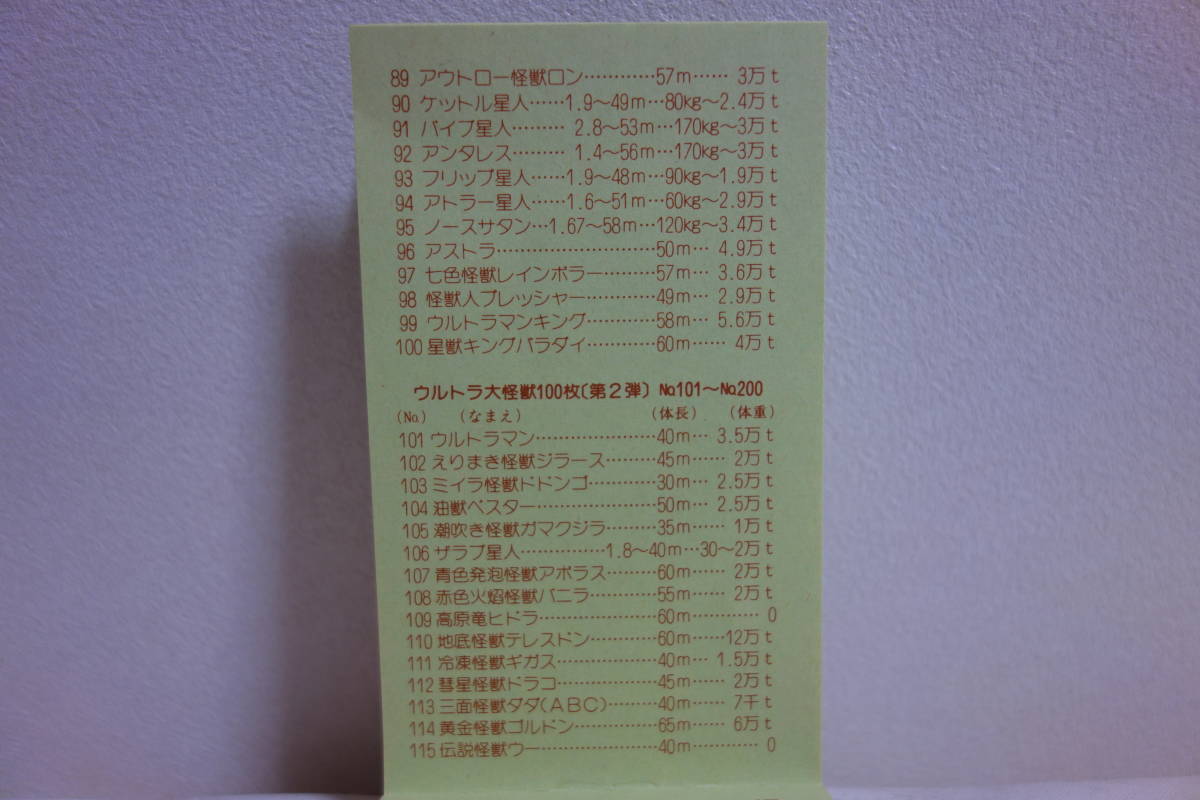 89 アウトロー怪獣ロン…………57m…… 3万t
90 ケットル星人……1.9〜49m…80kg〜2.4万t
91 バイブ星人……… 2.8〜53m…170kg〜3万t
92 アンタレス……… 1.4〜56m…170kg〜3万t
93 フリップ星人……1.9〜48m…90kg〜1.9万t
94 アトラー星人……1.6〜51m…60kg〜2.9万t
95 ノースサタン…1.67〜58m…120kg〜3.4万t
96 アストラ………………………50m… 4.9万t
97 七色怪獣レインボラー………57m… 3.6万t
98 怪獣人プレッシャー…………49m… 2.9万t
99 ウルトラマンキング…………58m… 5.6万t
100 星獣キングパラダイ…………60m…… 4万t
ウルトラ大怪獣100枚〔第2弾〕 №101〜№200
(No.) (なまえ) (体長) (体重)
101 ウルトラマン…………………40m… 3.5万t
102 えりまき怪獣ジラース………45m…… 2万t
103 ミイラ怪獣ドドンゴ…………30m… 2.5万t
104 油獣ペスター…………………50m… 2.5万t
105 潮吹き怪獣ガマクジラ………35m…… 1万t
106 ザラブ星人……………1.8〜40m…30〜2万t
107 青色発泡怪獣アボラス………60m…… 2万t
108 赤色火焰怪獣バニラ…………55m…… 2万t
109 高原竜ヒドラ…………………60m………… 0
110 地底怪獣テレスドン…………60m……12万t
111 冷凍怪獣ギガス………………40m… 1.5万t
112 彗星怪獣ドラコ………………45m…… 2万t
113 三面怪獣ダダ(ABC)………40m…… 7千t
114 黄金怪獣ゴルドン……………65m…… 6万t
115 伝説怪獣ウー…………………40m………… 0